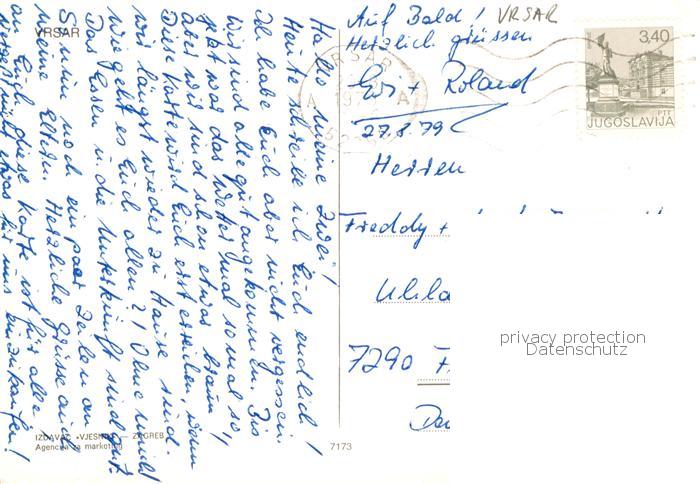 VRSAR
Hallo meine Zwei!
Heute schreibe ich Euch endlich!
Ich habe Euch aber nicht vergessen.
Wir sind alle gut angekommen. Bis
jetzt war das Wetter mal so mal so,
aber wir sind schon etwas braun!
Diese Karte wird Euch erst erreichen, wenn
wir längst wieder zu Hause sind.
Wie geht es Euch allen?! Ohne mich!
Das Essen u. die Unterkunft sind gut.
So nun noch ein paar Zeilen an
meine Eltern. Herzliche Grüsse auch
an Euch, diese Karte ist für alle
Vergesst nicht etwas für uns einzukaufen!
IZDAVAČ «VJESNIK» — ZAGREB
Agencija za marketing
7173
Auf Bald! VRSAR
Herzlich grüssen
Evi + Roland
27.8.79
VRSAR
JUGOSLAVIJA
3,40
PTT
Herren
Freddy +
7290 F
privacy protection
Datenschutz